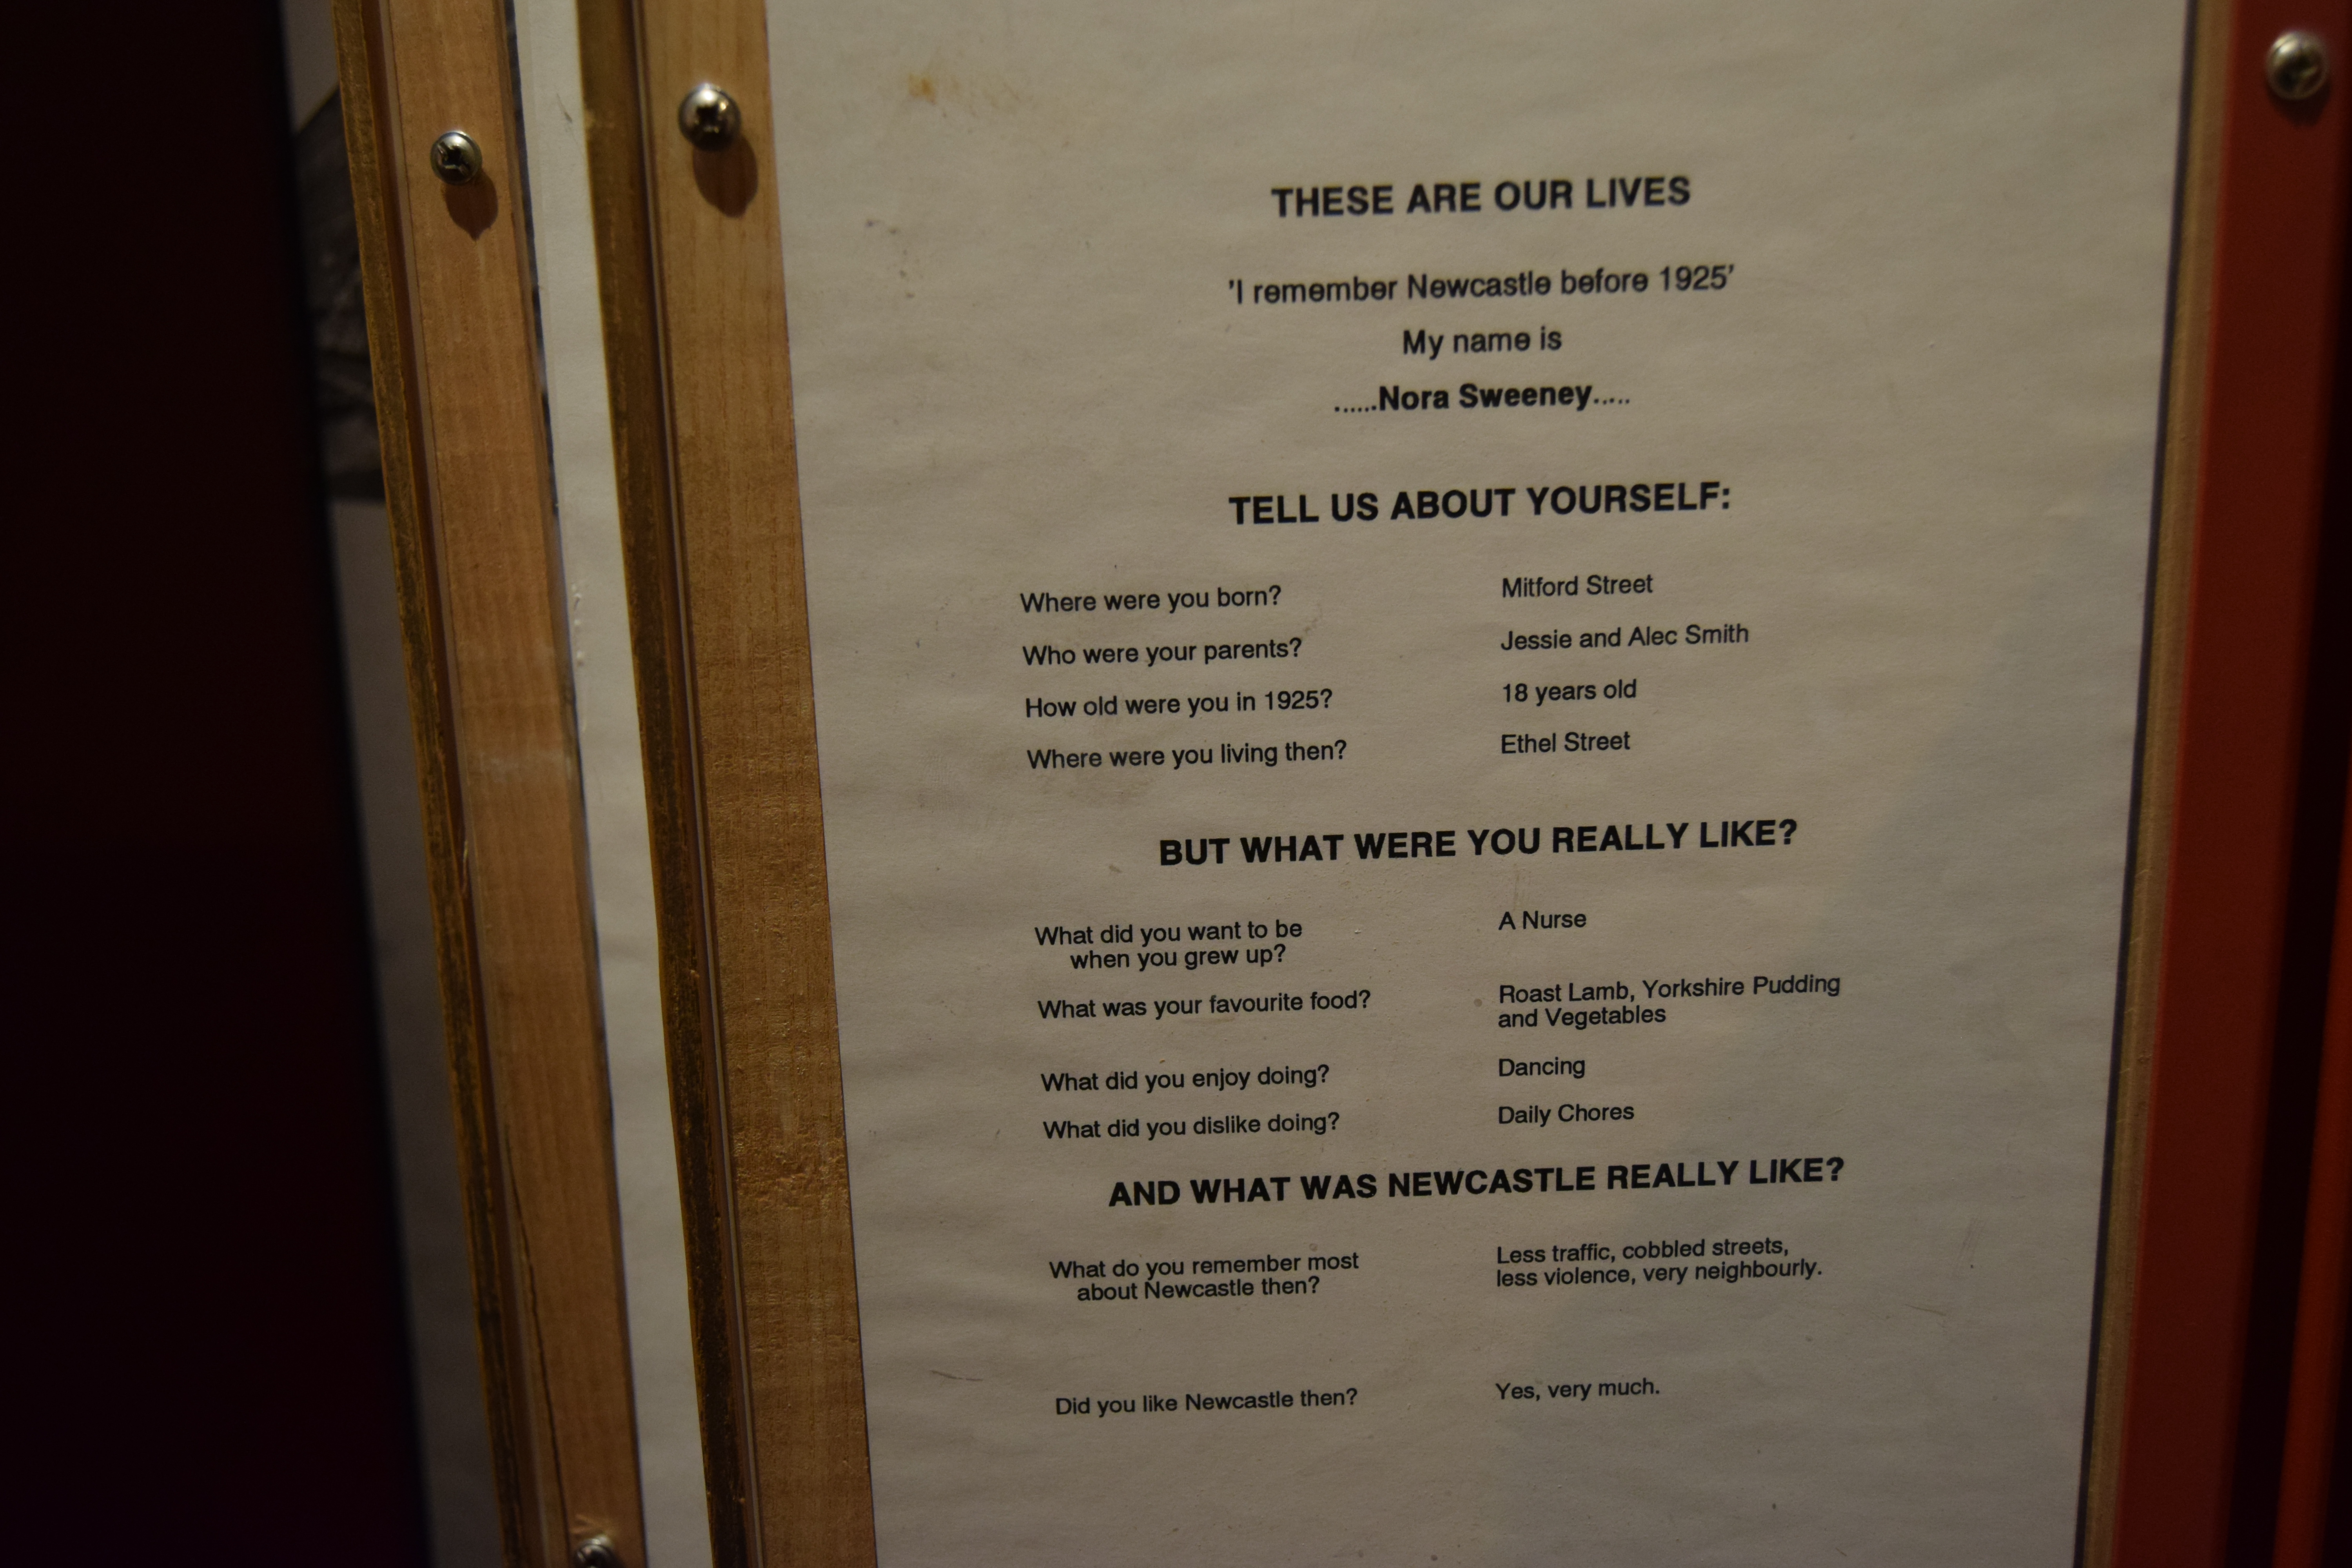 THESE ARE OUR LIVES
'I remember Newcastle before 1925'
My name is
......Nora Sweeney.....
TELL US ABOUT YOURSELF:
Where were you born? Mitford Street
Who were your parents? Jessie and Alec Smith
How old were you in 1925? 18 years old
Where were you living then? Ethel Street
BUT WHAT WERE YOU REALLY LIKE?
What did you want to be A Nurse
when you grew up?
What was your favourite food? Roast Lamb, Yorkshire Pudding
and Vegetables
What did you enjoy doing? Dancing
What did you dislike doing? Daily Chores
AND WHAT WAS NEWCASTLE REALLY LIKE?
What do you remember most Less traffic, cobbled streets,
about Newcastle then? less violence, very neighbourly.
Did you like Newcastle then? Yes, very much.